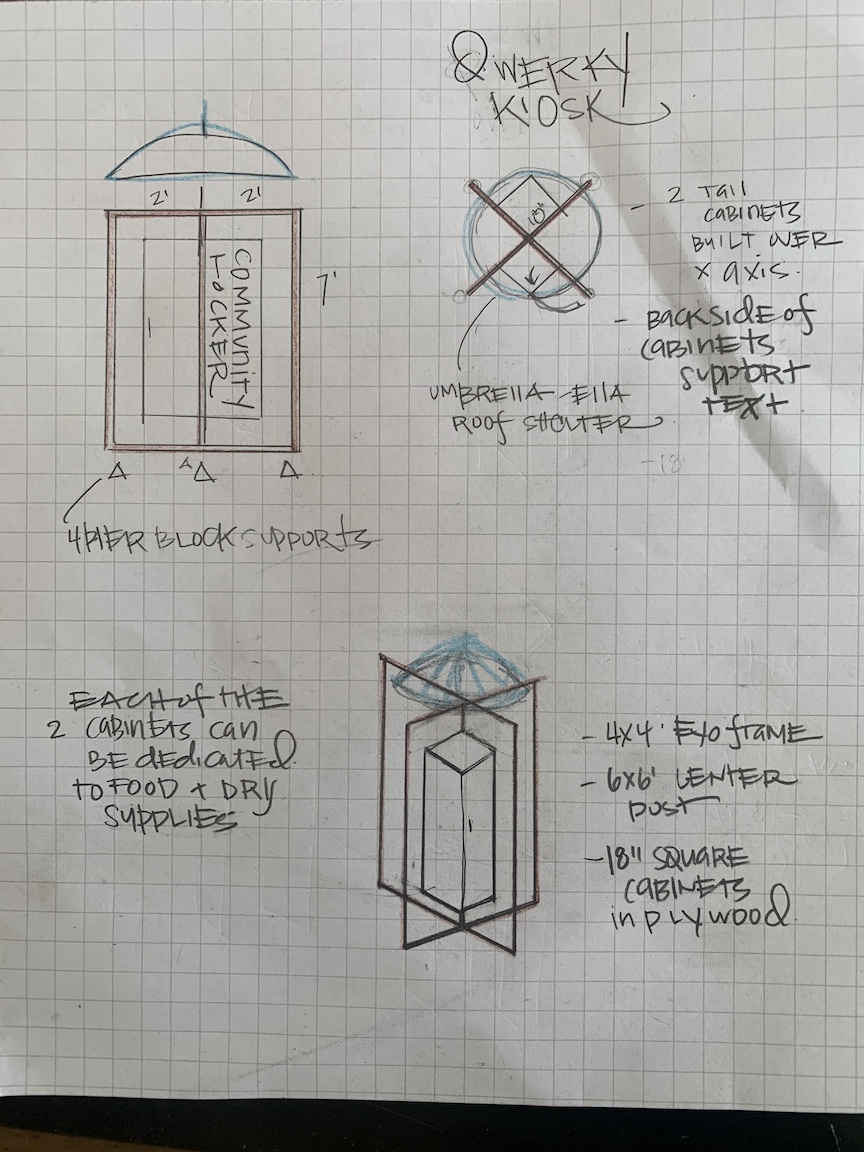 QWERKY
KIOSK
2' 2'
7'
COMMUNITY
LOCKER
4 PIER BLOCK SUPPORTS
18"
- 2 TALL
CABINETS
BUILT OVER
X AXIS.
- BACKSIDE OF
CABINETS
SUPPORT
TEXT
UMBRELLA-ELLA
ROOF SHELTER
-18
EACH OF THE
2 CABINETS CAN
BE DEDICATED
TO FOOD + DRY
SUPPLIES
- 4X4' EXO FRAME
- 6X6' CENTER
POST
- 18" SQUARE
CABINETS
IN PLYWOOD